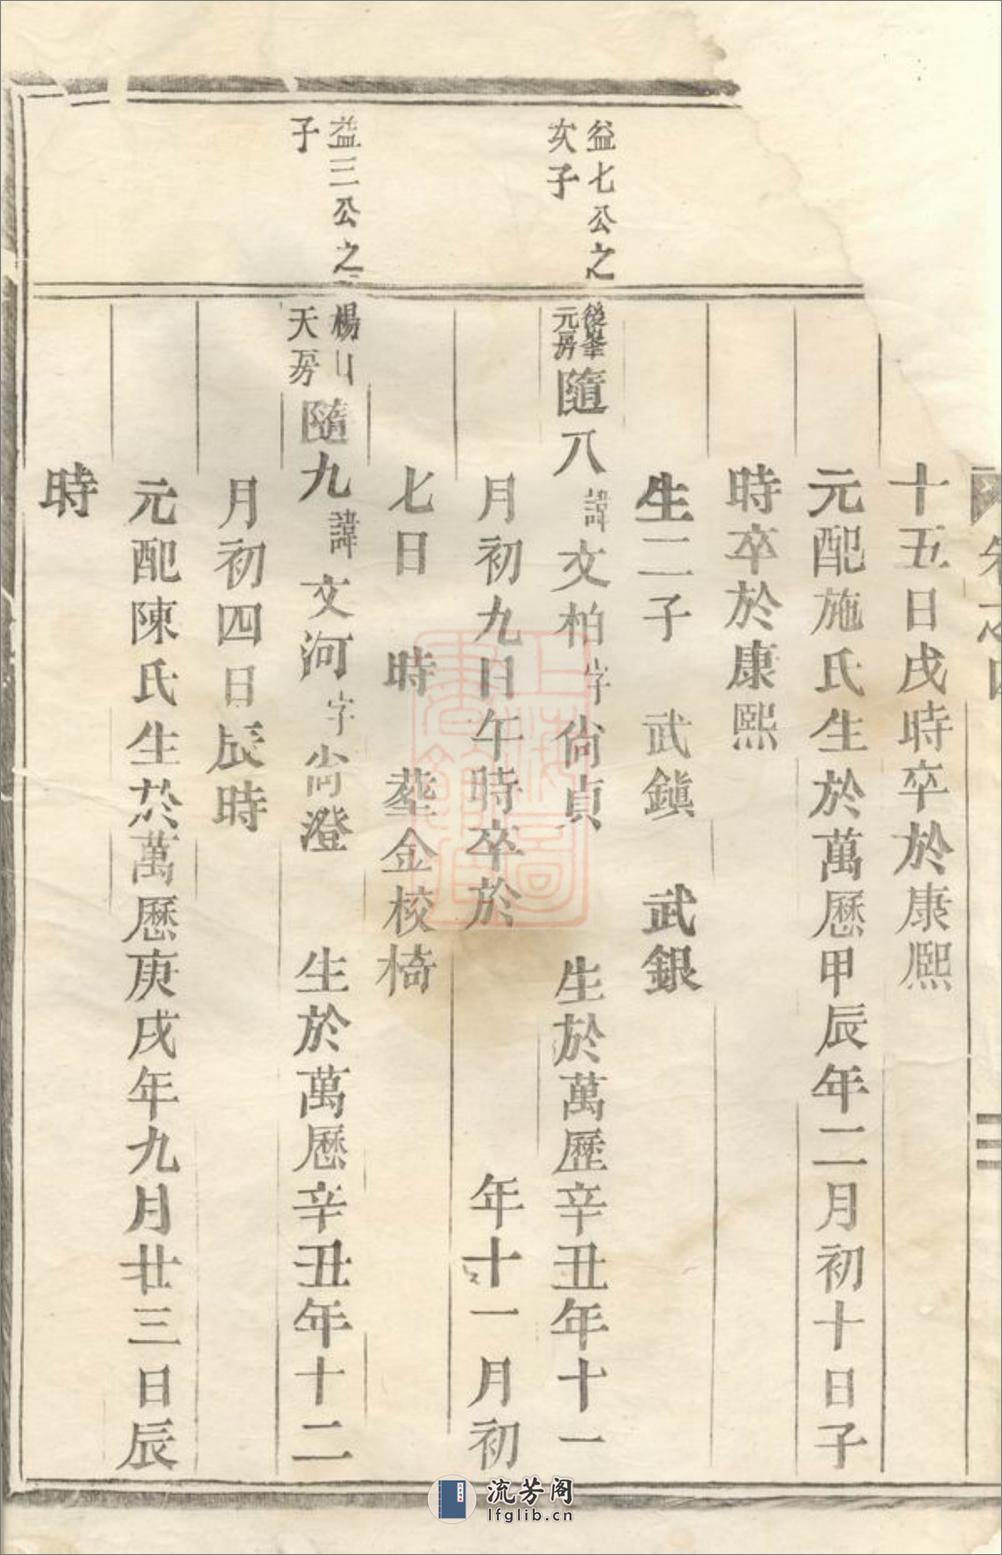 十五日戌時卒於康熙
元配施氏生於萬歷甲辰年二月初十日子
時卒於康熙
生二子 武鎮 武銀
益七公之
次子
後峯
元房
隨八 諱文柏字尙貞 生於萬歷辛丑年十一
月初九日午時卒於 年十一月初
七日 時 塟金校椅
益三公之
子
楊山
天房
隨九 諱文河字尙澄 生於萬歷辛丑年十二
月初四日辰時
元配陳氏生於萬歷庚戌年九月廿三日辰
時
流芳阁
lfglib.cn